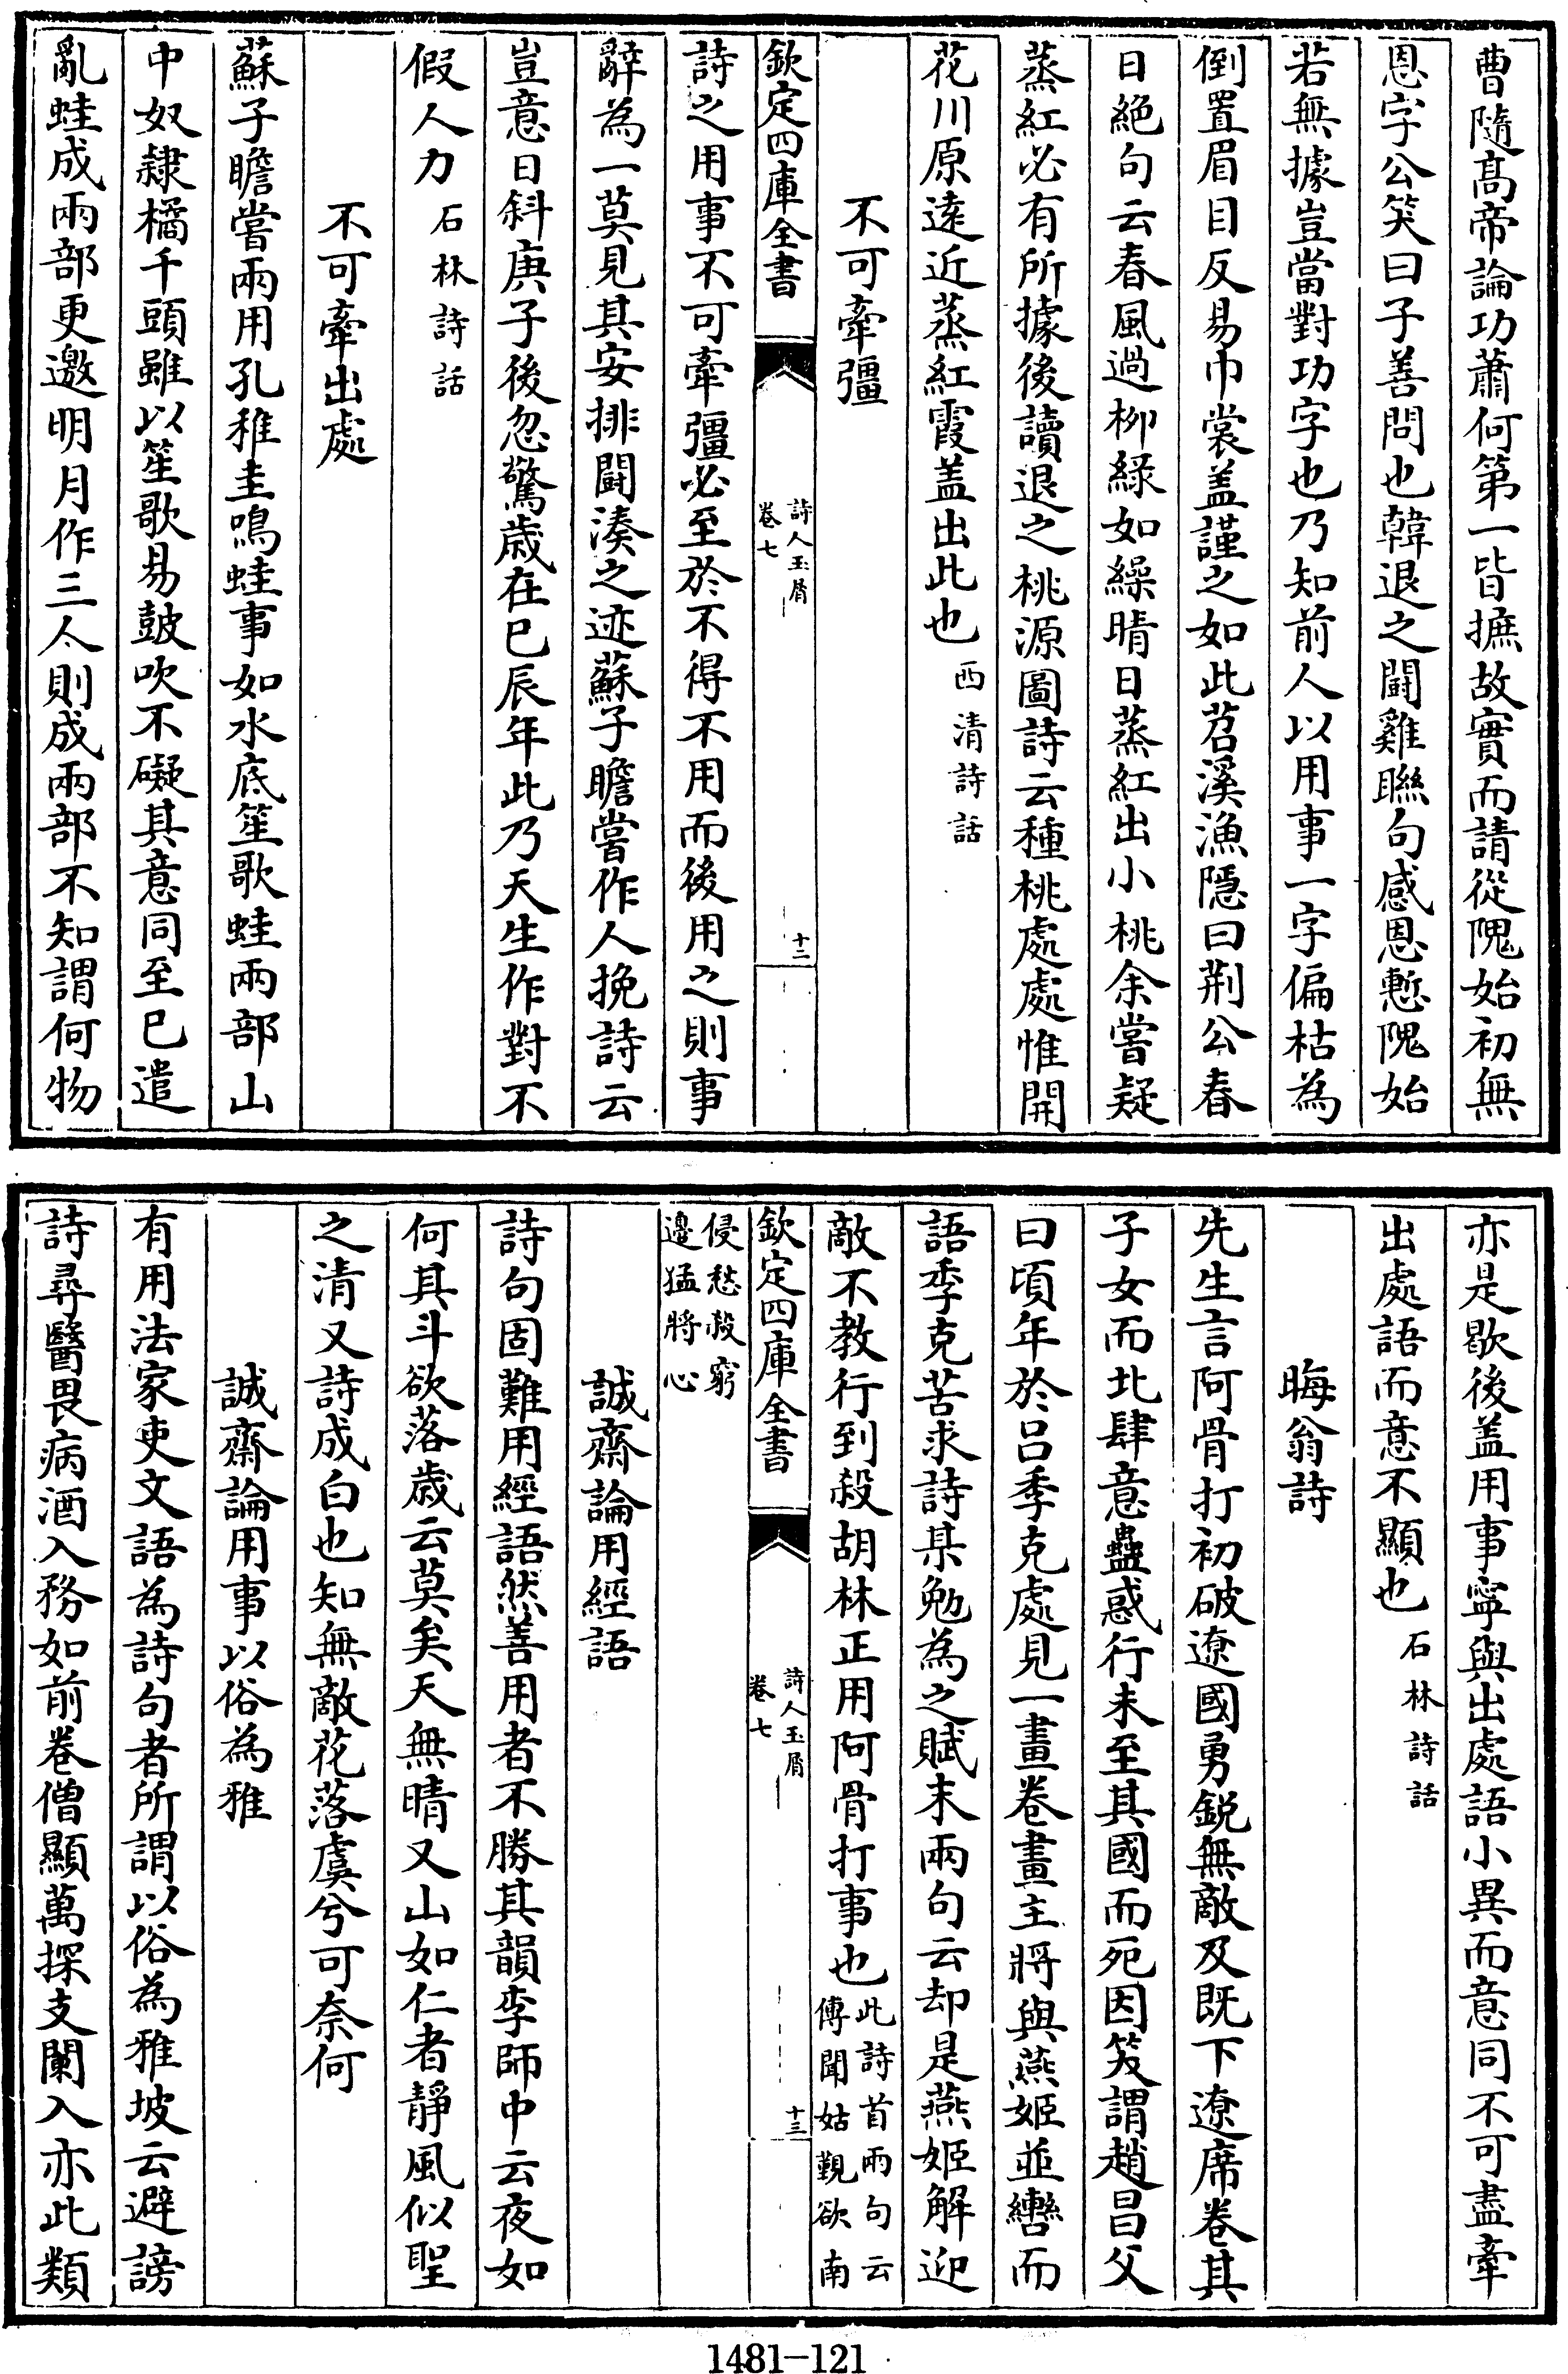 曹隨髙帝論功蕭何第一皆摭故實而請從隗始初無
恩字公笑曰子善問也韓退之鬭雞聮句感恩慙隗始
若無據豈當對功字也乃知前人以用事一字偏枯為
倒置眉目反易巾裳盖謹之如此苕溪漁隠曰荆公春
日絶句云春風過栁緑如繰晴日蒸紅出小桃余嘗疑
蒸紅必有所據後讀退之桃源圖詩云種桃處處惟開
花川原逺近蒸紅霞盖出此也 西清詩話
不可牽彊
欽定四庫全書
詩人玉屑
卷七
十二
詩之用事不可牽彊必至於不得不用而後用之則事
辭為一莫見其安排鬭湊之迹蘇子瞻嘗作人挽詩云
豈意日斜庚子後忽驚歳在已辰年此乃天生作對不
假人力 石林詩話
不可牽出處
蘇子瞻嘗兩用孔稚圭鳴蛙事如水底笙歌蛙兩部山
中奴隷橘千頭雖以笙歌易皷吹不礙其意同至已遣
亂蛙成兩部更邀明月作三人則成兩部不知謂何物
亦是歇後盖用事寜與出處語小異而意同不可盡牽
出處語而意不顯也 石林詩話
晦翁詩
先生言阿骨打初破遼國勇鋭無敵及既下遼席卷其
子女而北肆意蠱惑行未至其國而死因笑謂趙昌父
曰頃年於吕季克處見一畫卷畫主將與燕姬並轡而
語季克苦求詩某勉為之賦末兩句云却是燕姬解迎
敵不教行到殺胡林正用阿骨打事也 此詩首兩句云
傳聞姑覲欲南
欽定四庫全書
詩人玉屑
卷七
十三
侵愁殺窮
邊猛將心
誠齋論用經語
詩句固難用經語然善用者不勝其韻李師中云夜如
何其斗欲落歳云莫矣天無晴又山如仁者静風似聖
之清又詩成白也知無敵花落虞兮可奈何
誠齋論用事以俗為雅
有用法家吏文語為詩句者所謂以俗為雅坡云避謗
詩尋醫畏病酒入務如前卷僧顯萬探支闌入亦此類
1481-121